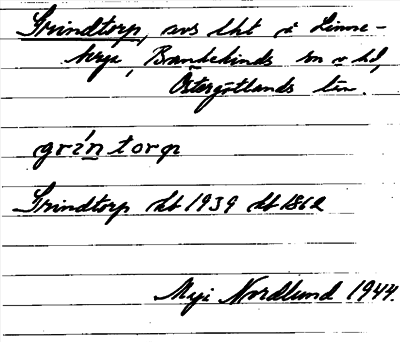 Grindtorp, avs lht å Linne-
berga, Brunnebinds sn o hd,
Östergötlands län.
gríntorp
Grindtorp Ab 1939 db 1862
Maj Nordlund 1944.